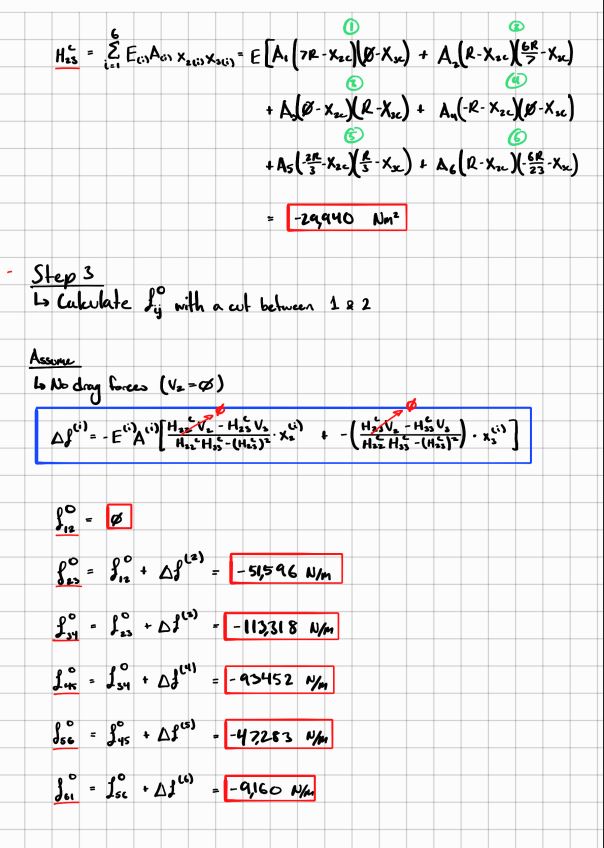 ① ②
H₂₃ᶜ = ⁶Σᵢ₌₁ E₍ᵢ₎A₍ᵢ₎ X₂₍ᵢ₎X₃₍ᵢ₎ = E[A₁(7R-X₂c)(∅-X₃c) + A₂(R-X₂c)(6R/7-X₃c)
③ ④
+ A₃(∅-X₂c)(R-X₃c) + A₄(-R-X₂c)(∅-X₃c)
⑤ ⑥
+A₅(-2R/3-X₂c)(R/3-X₃c) + A₆(R-X₂c)(-6R/23-X₃c)
= -29,940 Nm²
Step 3
↳ Calculate f⁰ᵢⱼ with a cut between 1 & 2
Assume
↳ No drag forces (V₂=∅)
Δf⁽ⁱ⁾ = -E⁽ⁱ⁾A⁽ⁱ⁾[(H₂₂ᶜV₂ - H₂₃ᶜV₃)/(H₂₂ᶜH₃₃ᶜ-(H₂₃ᶜ)²) · x₂⁽ⁱ⁾ + -((H₂₃ᶜV₂ - H₃₃ᶜV₃)/(H₂₂ᶜH₃₃ᶜ-(H₂₃ᶜ)²)) · x₃⁽ⁱ⁾]
f₁₂⁰ = ∅
f₂₃⁰ = f₁₂⁰ + Δf⁽²⁾ = -51,596 N/m
f₃₄⁰ = f₂₃⁰ + Δf⁽³⁾ = -113,318 N/m
f₄₅⁰ = f₃₄⁰ + Δf⁽⁴⁾ = -93452 N/m
f₅₆⁰ = f₄₅⁰ + Δf⁽⁵⁾ = -47,283 N/m
f₆₁⁰ = f₅₆⁰ + Δf⁽⁶⁾ = -9,160 N/m